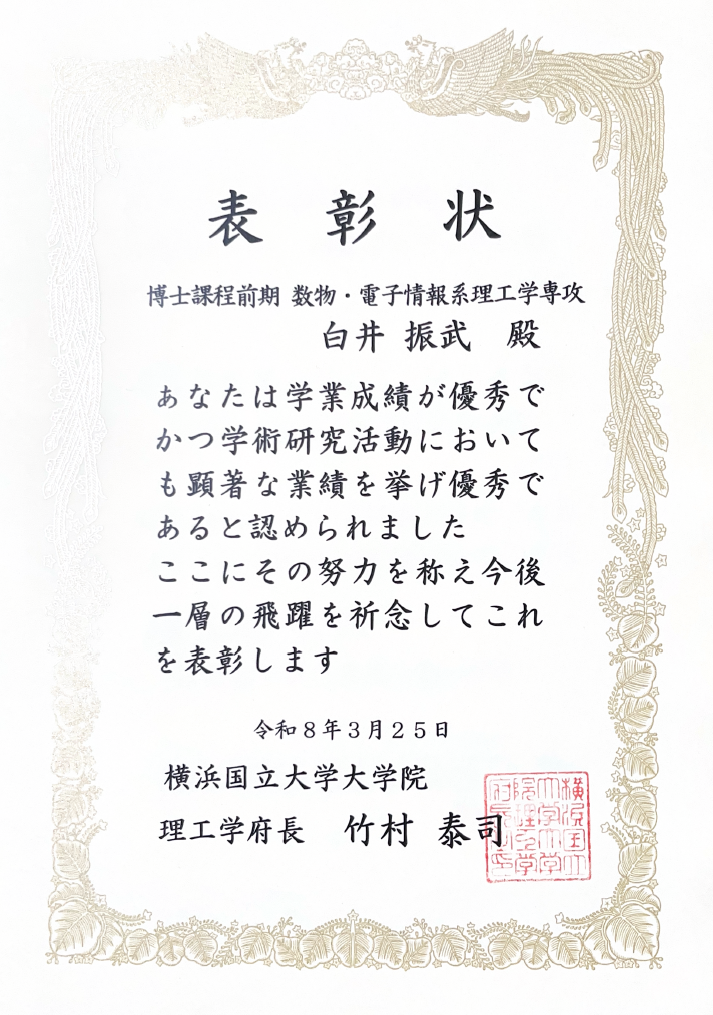 表彰状
博士課程前期 数物・電子情報系理工学専攻
白井 振武 殿
あなたは学業成績が優秀で
かつ学術研究活動において
も顕著な業績を挙げ優秀で
あると認められました
ここにその努力を称え今後
一層の飛躍を祈念してこれ
を表彰します
令和8年3月25日
横浜国立大学大学院
理工学府長 竹村 泰司